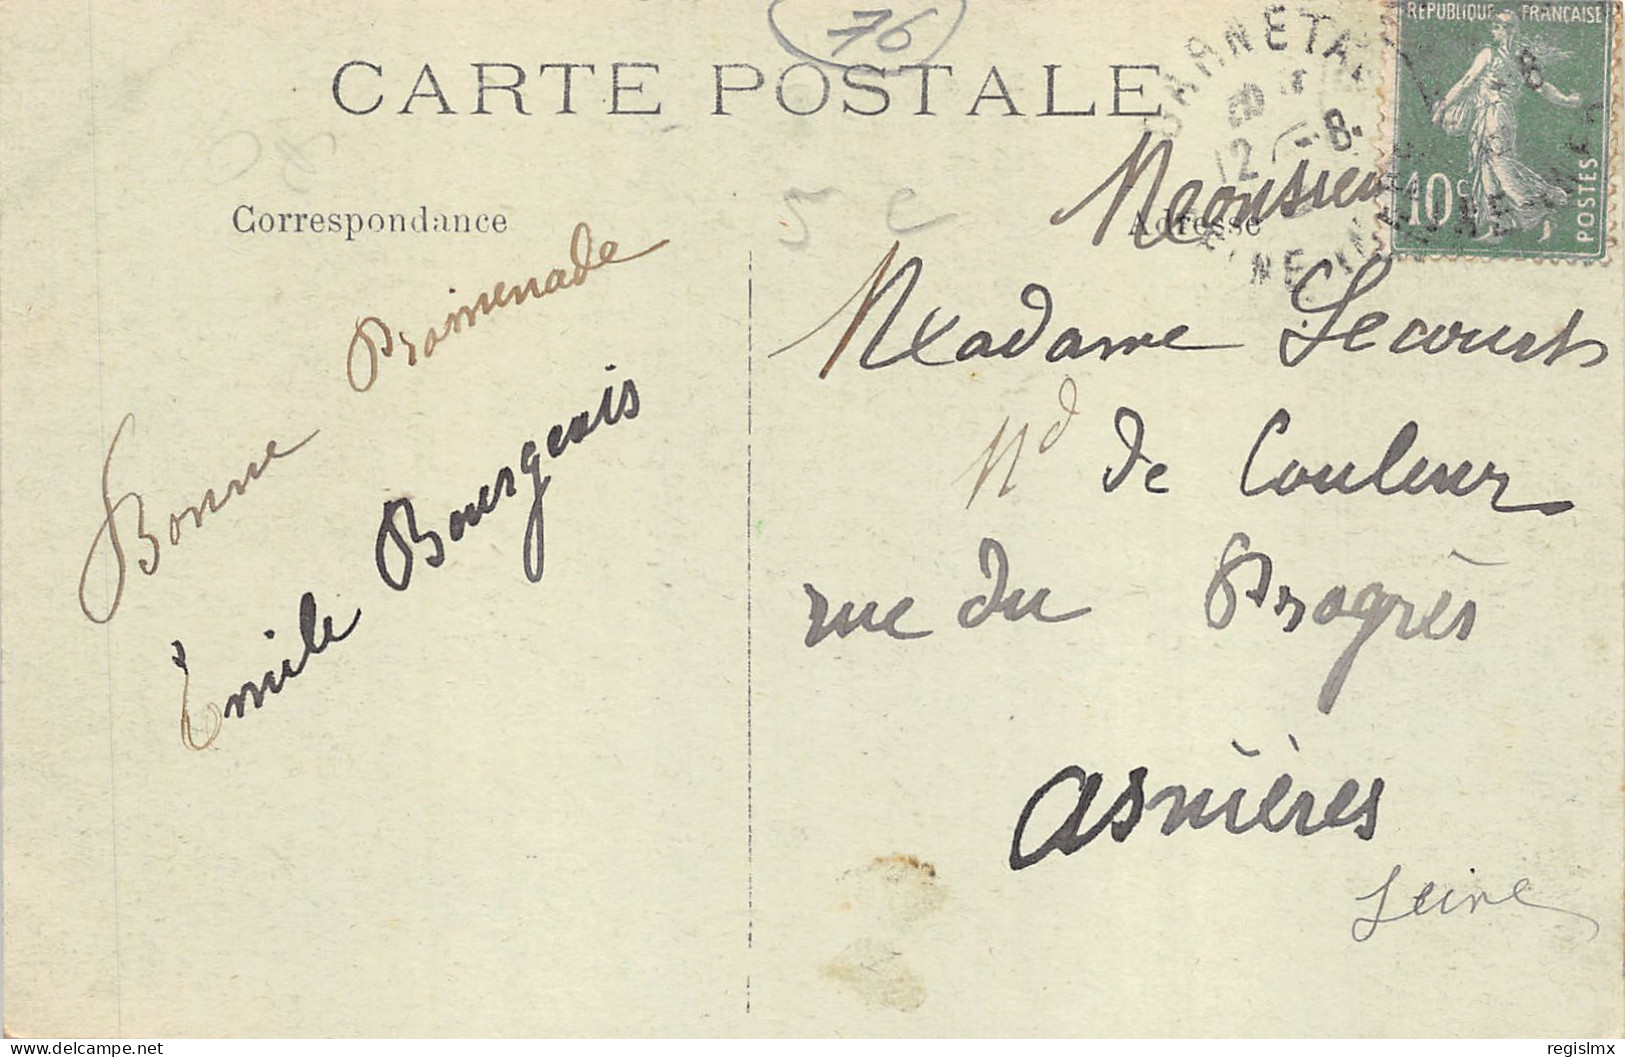 76
CARTE POSTALE
RÉPUBLIQUE FRANÇAISE
10c
POSTES
DARNETAL
12
-8-
5 c
Correspondance
Adresse
Bonne Promenade
Emile Bourgeois
Monsieur
Madame Lecourt
Md de Couleur
rue du Progrès
Asnières
Seine
delcampe.net
regislmx